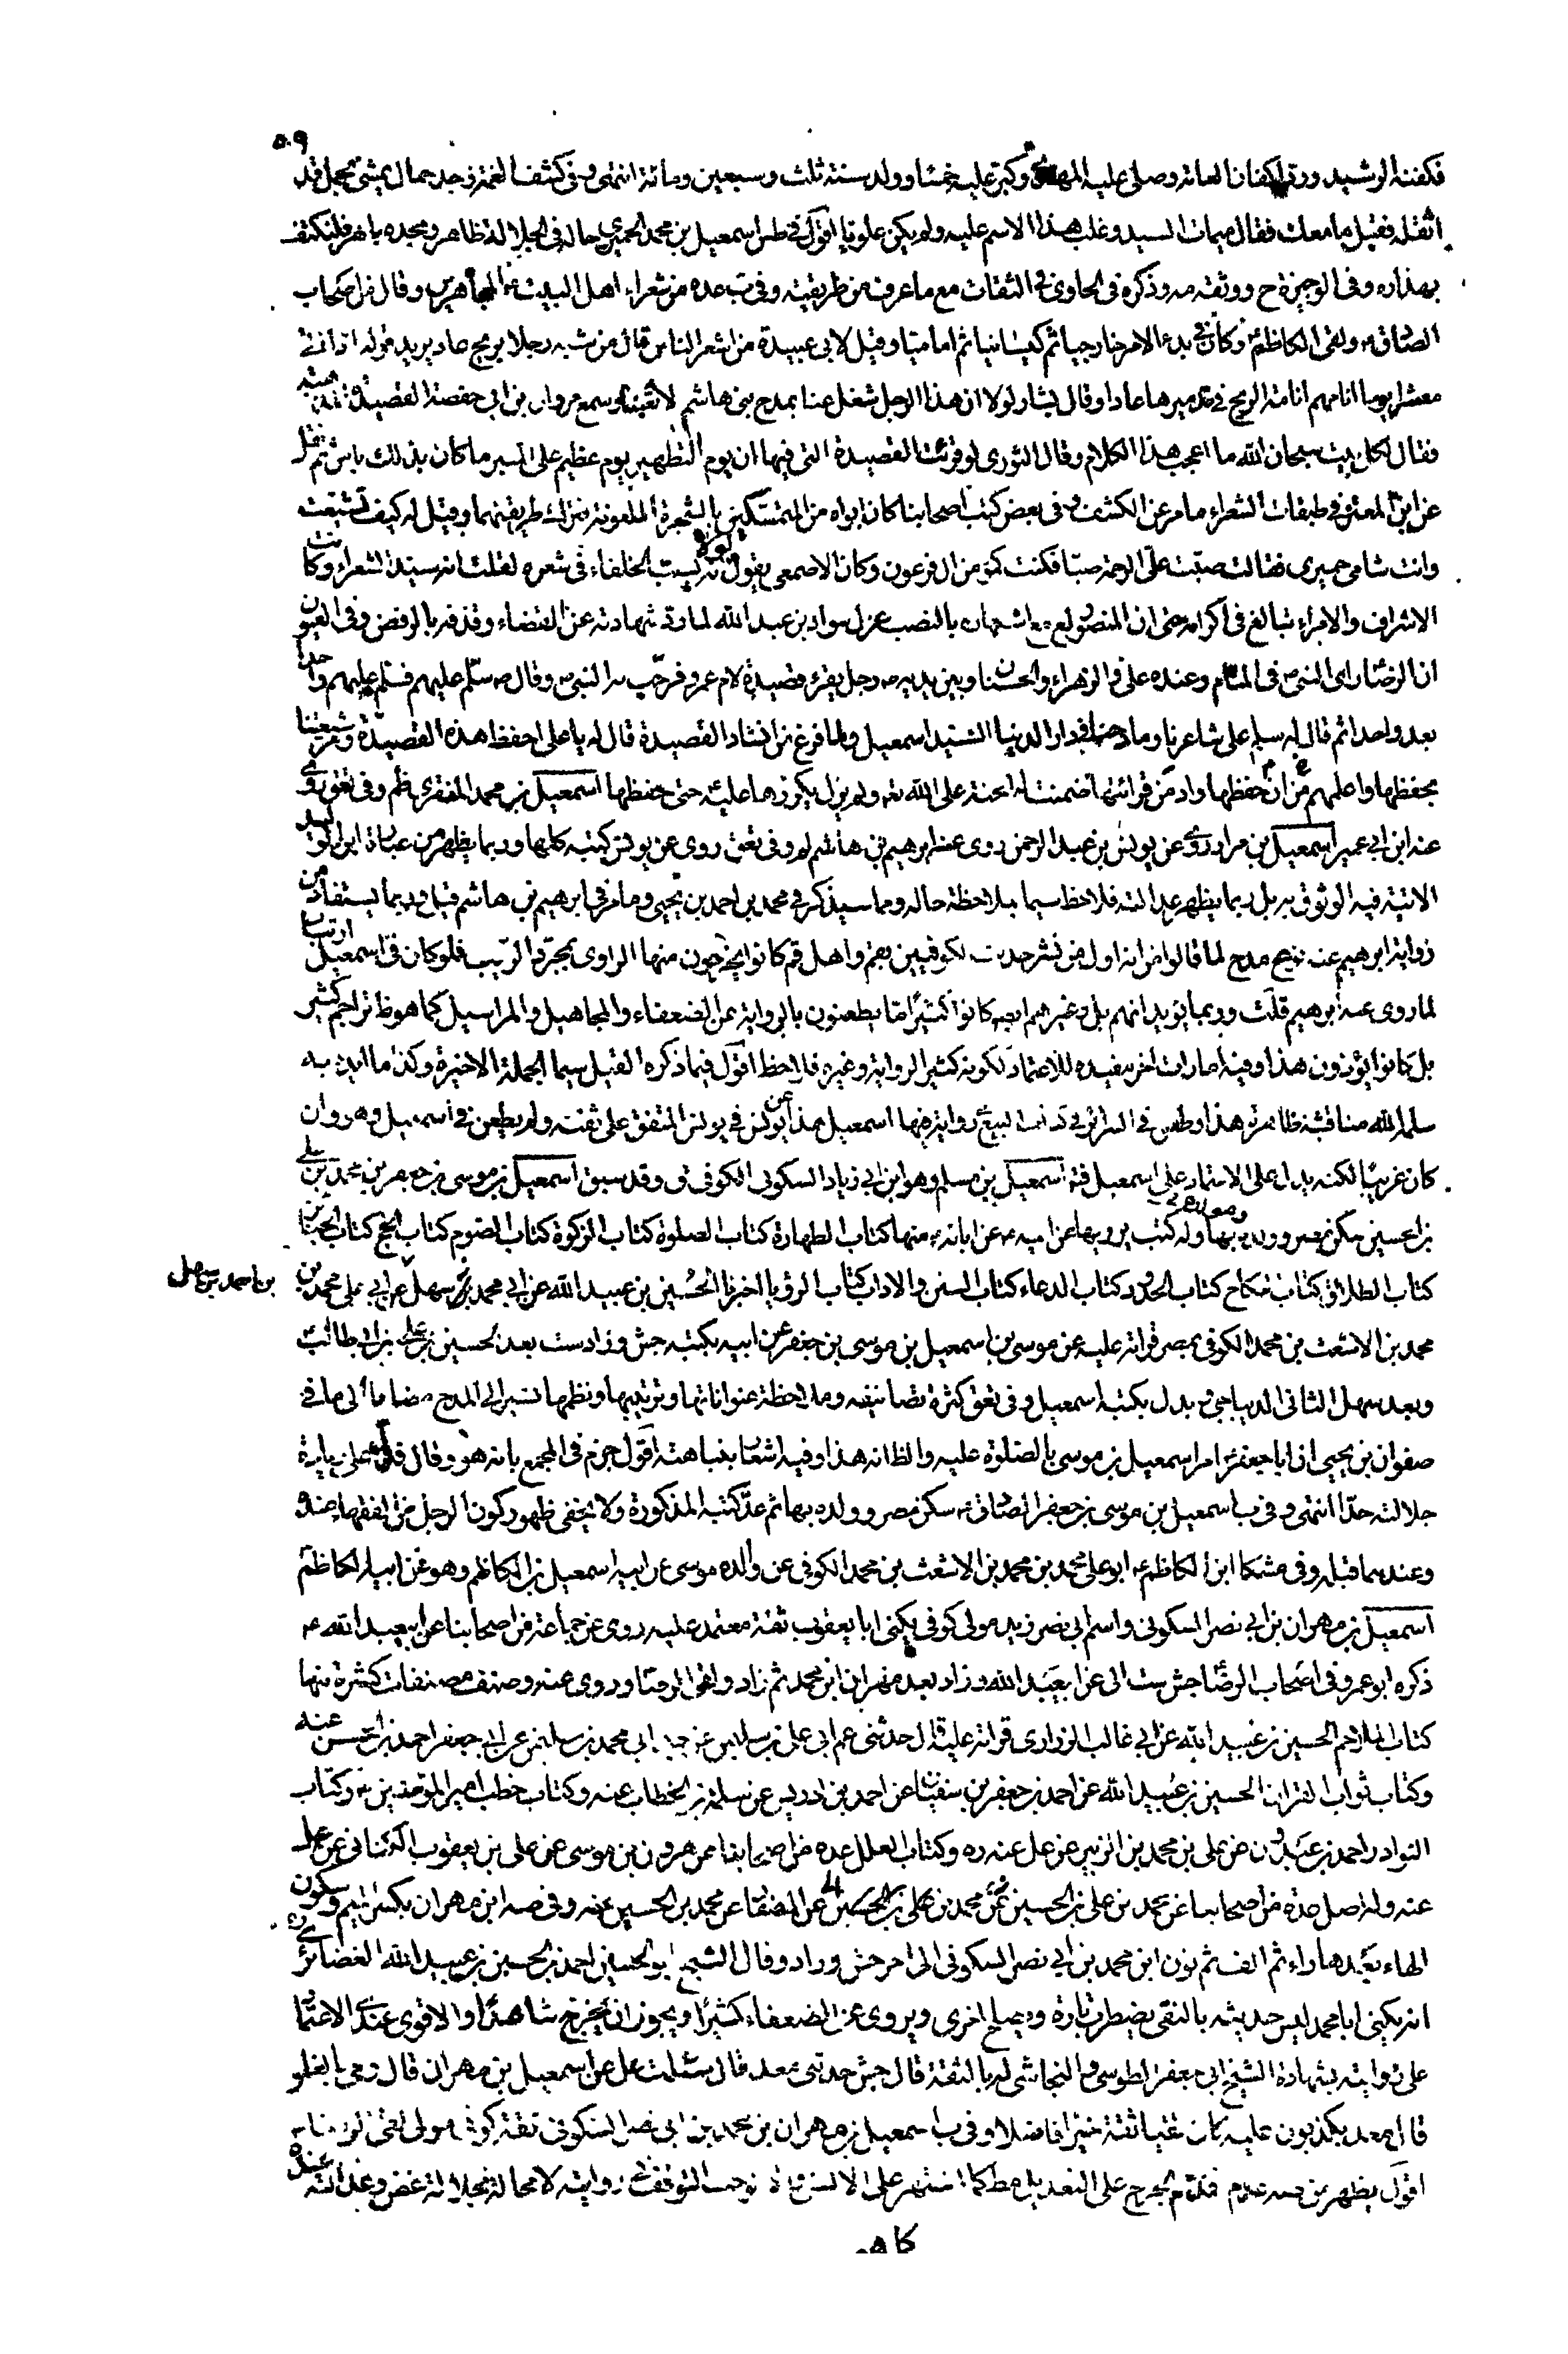 ٥٠٩
فكفنه الرشيد ورد اكفان العامة وصلى عليه المهدي وكبر عليه خمسا وولد سنة ثلث وسبعين ومائة انتهى وفى كشف الغمة وجد حمال يمشى بحمل قد
اثقله فقيل ما معك فقال ميمات السيد وغلب هذا الاسم عليه ولم يكن علويا اقول في طس اسمعيل بن محمد الحميري حاله في الجلالة ظاهر ومجده باهر فلنكتف
بهذا ره وفى الوجيزة ح ووثقه مه وذكره فى الحاوى في الثقات مع ما عرف من طريقته وفى ب عده من شعراء اهل البيت ع المجاهرين وقال من اصحاب
الصادق ع ولقى الكاظم ع وكان في بدء الامر خارجيا ثم كيسانيا ثم اماميا وقيل لابى عبيدة من اشعر الناس قال من شبه رجلا بريح عاد يريد قوله اذا اتى
معشرا يوما انامهم انامة الريح في تدميرها عادا وقال بشار لولا ان هذا الرجل شغل عنا بمدح بنى هاشم لاتعبنا وسمع مروان بن ابى حفصة القصيدة
فقال لكل بيت سبحان الله ما اعجب هذا الكلام وقال الثورى لو قرئت القصيدة التى فيها ان يوم التطهير يوم عظيم على المنبر ما كان بذلك باس ثم نقل
عن ابن المعتز في طبقات الشعراء ما مر عن الكشف وفى بعض كتب اصحابنا كان ابواه من المتمسكين بالشجرة الملعونة فترك طريقتهما وقيل له كيف تشيعت
وانت شامى حميرى فقال صبت على الرحمة صبا فكنت كمؤمن ال فرعون وكان الاصمعى يقول لولا انه يسب الخلفاء فى شعره لقلت انه سيد الشعراء وكانت
الاشراف والامراء تبالغ فى اكرامه حتى ان المنصور مع اشتهاره بالنصب عزل سوار بن عبد الله لما رد شهادته عن القضاء وقذفه بالرفض وفى العيون
ان الرضا راى النبى ص فى المنام وعنده على والزهراء والحسنان وبين يديه رجل يقرء قصيدة لام عمرو فرحب به النبى ص وقال سلم عليهم فسلم عليهم واحدا
بعد واحد ثم قال له سلم على شاعرنا ومادحنا فى دار الدنيا السيد اسمعيل ولما فرغ من انشاد القصيدة قال له يا على احفظ هذه القصيدة ومر شيعتنا
بحفظها واعلمهم ان من حفظها وادمن قرائتها ضمنت له الجنة على الله تعه ولم يزل يكررها عليه حتى حفظها اسمعيل بن محمد المنقرى ظم وفى تعق روى
عنه ابن ابى عمير اسمعيل بن مرار روى عن يونس بن عبد الرحمن روى عنه ابرهيم بن هاشم لم وفى تعق روى عن يونس كتبه كلها وربما يظهر من عبارة ابن الوليد
الاتية فيه الوثوق به بل ربما يظهر عدالته فلاحظ سيما بملاحظة حاله ومما سيذكر في محمد بن احمد بن يحيى وما مر في ابرهيم بن هاشم قيل وربما يستفاد من
رواية ابرهيم عنه نوع مدح لما قالوا من انه اول من نشر حديث الكوفيين بقم واهل قم كانوا يخرجون منها الراوى بمجرد الريب فلو كان فى اسمعيل ارتياب
لما روى عنه ابرهيم قلت وربما يؤيد انهم بل وغيرهم ايضه كانوا كثيرا ما يطعنون بالرواية عن الضعفاء والمجاهيل والمراسيل كما هو ظ تراجم كثير
بل كانوا يؤذون هذا وفيه امارات اخر مفيده للاعتماد لكونه كثير الرواية وغيره فلاحظ اقول فيما ذكره القيل سيما الجملة الاخيرة وكذا ما ايده به
سلمه الله مناقشة ظاهرة هذا وطعن في السرائر في كتاب البيع في رواية فيها اسمعيل هذا عن يونس في يونس المتفق على ثقته ولم يطعن في اسمعيل وهو وان
كان غريبا لكنه يدل على الاعتماد على اسمعيل فتد اسمعيل بن مسلم وهو ابن ابى زياد السكونى الكوفى ق وقد سبق اسمعيل بن موسى بن جعفر بن محمد بن على
بن الحسين سكن مصر وولده بها وله كتب يرويها عن ابيه عن ابائه ع منها كتاب الطهارة كتاب الصلوة كتاب الزكوة كتاب الصوم كتاب الحج كتاب الجنائز
كتاب الطلاق كتاب النكاح كتاب الحدود كتاب الدعاء كتاب السنن والاداب كتاب الرؤيا اخبرنا الحسين بن عبيد الله عن ابى محمد بن سهل عن ابى على محمد بن
بن احمد بن سهل
محمد بن الاشعث بن محمد الكوفى بمصر قراءة عليه عن موسى بن اسمعيل بن موسى بن جعفر عن ابيه بكتبه جش وزاد ست بعد الحسين بن على بن ابى طالب
وبعد سهل الثانى الديباجى وبدل بكتبه اسمعيل وفى تعق كثرة تصانيفه وملاحظة عنواناتها وترتيبها ونظمها تشير الى المدح مضافا الى ما في
صفوان بن يحيى ان ابا جعفر ع امر اسمعيل بن موسى بالصلوة عليه والظ انه هذا وفيه اشعار بنباهته اقول جزم فى المجمع بانه هو وقال فدل على زيادة
جلالته جدا انتهى وفى ب اسمعيل بن موسى بن جعفر الصادق ع سكن مصر وولده بها ثم عد كتبه المذكورة ولا يخفى ظهور كون الرجل من الفقهاء عنده
وعندهما قبله وفى مشكا ابن الكاظم ع ابو على محمد بن محمد بن الاشعث بن محمد الكوفى عن والده موسى عن ابيه اسمعيل بن الكاظم وهو عن ابيه الكاظم
اسمعيل بن مهران بن ابى نصر السكونى واسم ابى نصر زيد مولى كوفى يكنى ابا يعقوب ثقة معتمد عليه روى عن جماعة من اصحابنا عن ابيعبد الله ع
ذكره ابو عمرو فى اصحاب الرضا جش ست الى عن ابيعبد الله وزاد بعد مهران ابن محمد ثم زاد ولقى الرضا وروى عنه وصنف مصنفات كثيرة منها
كتاب الملاحم الحسين بن عبيد الله عن ابى غالب الزرارى قراءة عليه قال حدثنى عم ابى على بن سليمن عن جد ابى محمد بن سليمن عن ابى جعفر احمد بن الحسن عنه
وكتاب ثواب القران الحسين بن عبيد الله عن احمد بن جعفر بن سفيان عن احمد بن ادريس عن سلمة بن الخطاب عنه وكتاب خطب امير المؤمنين ع وكتاب
النوادر احمد بن عبدون عن على بن محمد بن الزبير عن عل عنه ره وكتاب العلل عده من اصحابنا عن هرون بن موسى عن على بن يعقوب الكنانى عن عل
عنه وله اصل عدة من اصحابنا عن محمد بن على بن الحسين عن محمد بن على بن الحسين عن الصفار عن محمد بن الحسين عنه وفى صه ابن مهران بكسر الميم وسكون
الهاء بعدها راء ثم الف ثم نون ابن محمد بن ابى نصر السكونى الى اخر جش وزاد وقال الشيخ ابو الحسين احمد بن الحسين بن عبيد الله الغضائرى ره
انه يكنى ابا محمد ليس حديثه بالنقى يضطرب تارة ويصلح اخرى ويروى عن الضعفاء كثيرا ويجوز ان يخرج شاهدا والاقوى عندى الاعتماد
على روايته بشهادة الشيخ ابى جعفر الطوسى والنجاشى له بالثقة قال جش حدثنى محمد قال سئلت عل عن اسمعيل بن مهران قال رمى بالغلو
قال محمد يكذبون عليه كان تقيا ثقة خيرا فاضلا وفى ب اسمعيل بن مهران بن محمد بن ابى نصر السكونى ثقة كوفى مولى لقى الرضا ع
اقول يظهر من صه عدم تقدم الجرح على التعديل مط كما اشتهر على الالسن توجب التوقف في روايته لا محالة بجلالة غض وعدالته عنده
كا هو